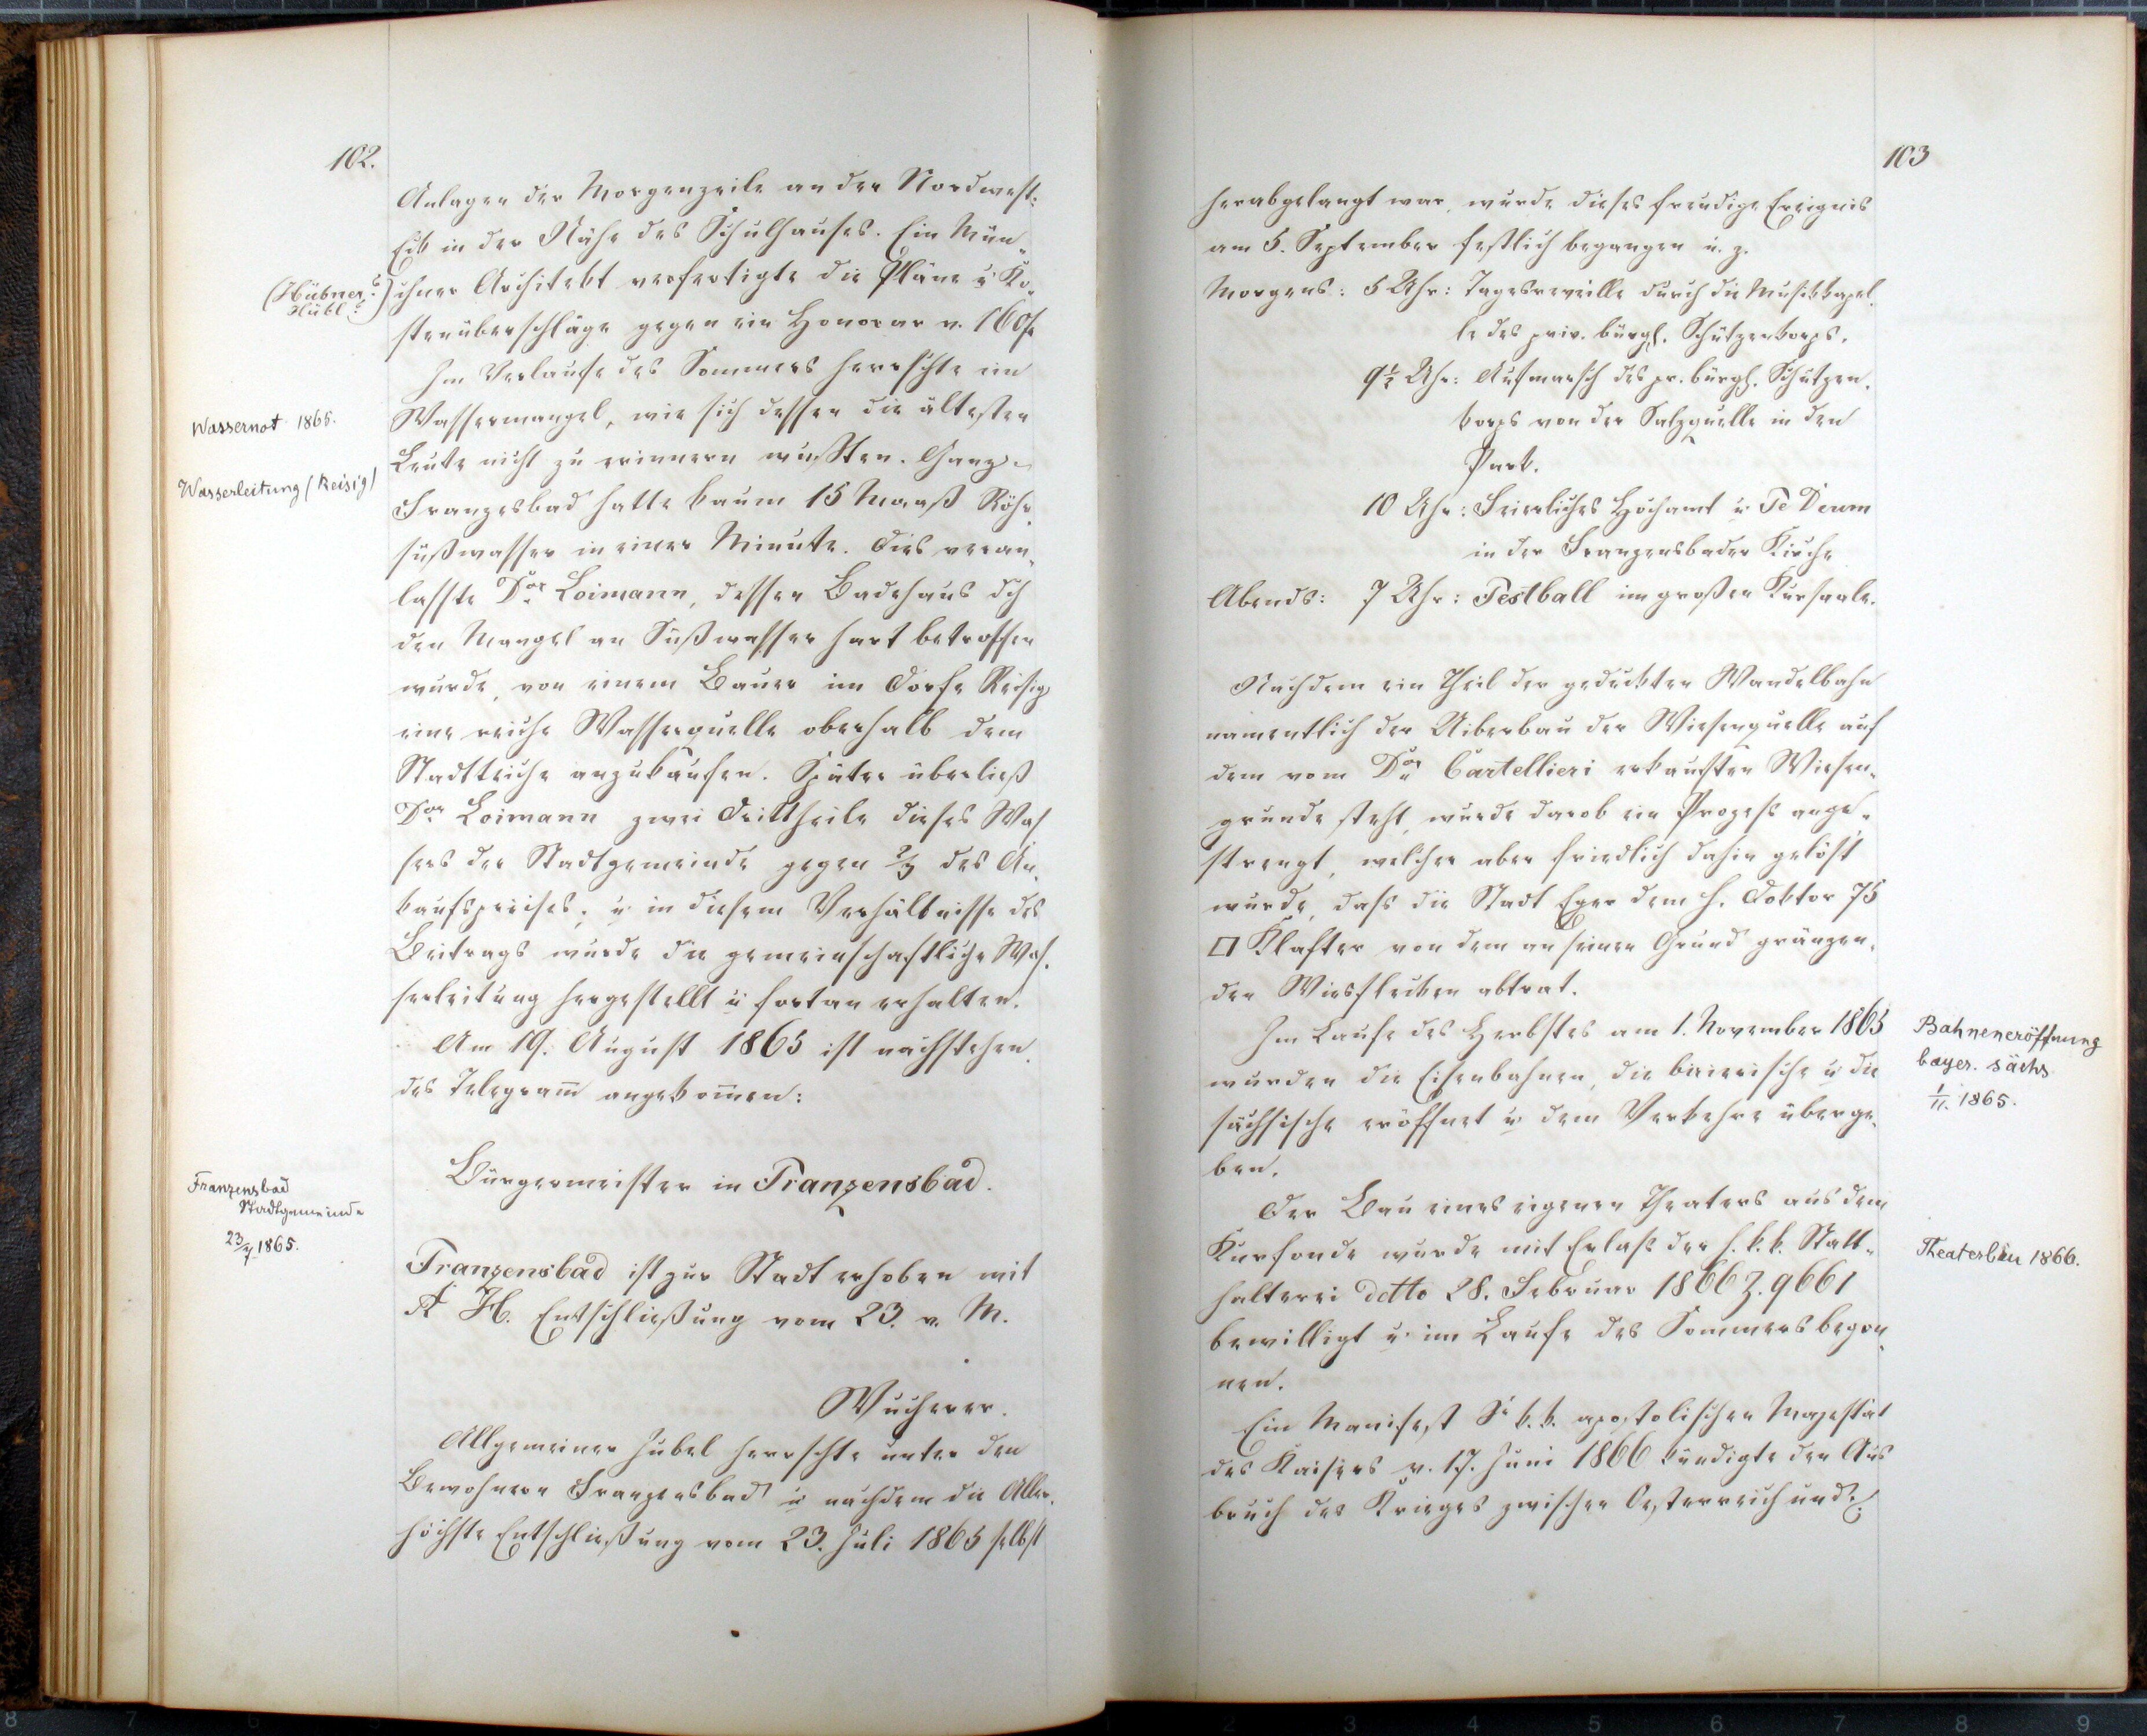 102.
Anlagen der Morgenzeile an der Nordwest-
Eck in der Nähe des Schulhauses. Ein Mün-
(Hübner?
Hübl?)
chner Architekt verfertigte die Pläne u Ko-
stenüberschläge gegen ein Honorar v. 160 f
Im Verlaufe des Sommers herrschte ein
Wassernot 1865.
Wassermangel, wie sich dessen die ältesten
Leute nicht zu erinnern wußten. Ganz-
Wasserleitung (Reisig)
Franzesbad hatte kaum 15 Maaß Röhr-
süßwasser in einer Minute. Dies veran-
lasste Dor Loimann, dessen Badehaus dch
den Mangel an Süßwasser hart betroffen
wurde, von einem Bauer im Dorfe Reisig
eine reiche Wasserquelle oberhalb dem
Stadtteiche anzukaufen. Später überließ
Dor Loimann zwei Drittheile dieses Was
sers der Stadtgemeinde gegen 2/3 des An-
kaufspreises; u in diesem Verhältnisse des
Beitrags wurde die gemeinschaftliche Was-
serleitung hergestellt u fortan erhalten.
Am 19. August 1865 ist nachstehen-
des Telegram̅ angekom̅en:
Bürgermeister in Franzensbad.
Franzensbad
Stadtgemeinde
23/7 1865.
Franzensbad ist zur Stadt erhoben mit
A H. Entschließung vom 23. v. M.
Wucherer.
Allgemeiner Jubel herrschte unter den
Bewohnern Franzensbad u nachdem die Aller-
höchste Entschließung vom 23. Juli 1865 selbst
103
herabgelangt war, wurde dieses freudige Ereignis
am 5. September festlich begangen u. z.
Morgens: 5 Uhr: Tagesreveille durch die Musikkapel-
le des priv. bürgl. Schützenkorps.
9 1/2 Uhr: Aufmarsch des pr. bürgl. Schützen-
korps von der Salzquelle in den
Park.
10 Uhr: Feierliches Hochamt u Te Deum
in der Franzensbader Kirche
Abends: 7 Uhr: Festball im großen Kursaale.
Nachdem ein Theil der gedeckten Wandelbahn
namentlich der Uiberbau der Wiesenquelle auf
dem vom Dor Cartellieri erkauften Wiesen-
grunde steht, wurde darob ein Prozeß ange-
strengt, welcher aber friedlich dahin gelöst
wurde, dass die Stadt Eger dem H. Doktor 75
□ Klafter von dem an seinen Grund gränzen-
den Wiesflecken abtrat.
Im Laufe des Herbstes am 1. November 1865
Bahneneröffnung
bayer. sächs.
1/11. 1865.
wurden die Eisenbahnen, die baierische u die
sächsische eröffnet u dem Verkehre überge-
ben.
Der Bau eines eigenen Theaters aus dem
Kurfonde wurde mit Erlaß der h. k. k. Statt-
Theaterbau 1866.
halterei detto 28. Februar 1866 Z. 9661
bewilligt u im Laufe des Sommers begon-
nen.
Ein Manifest Sr k. k. apostolischen Majestät
des Kaisers v. 17. Juni 1866 kündigte den Aus
bruch des Krieges zwischen Oesterreich und